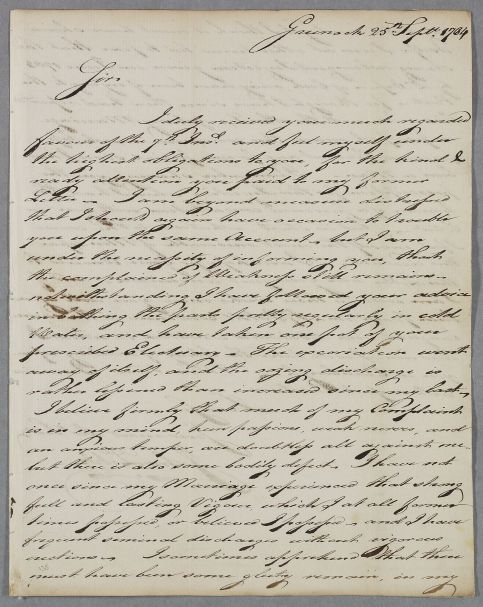 Greenock 25th Septr. 1784
Sir
I duly received your much regarded
favour of the 9th Inst. and feel myself under
the highest obligations to you, for the kind &
ready attention you paid to my former
Letter. I am beyond measure distressed
that I should again have occasion to trouble
you upon the same Account, but I am
under the necessity of informing you, that
the complaint of Weakness still remains
notwithstanding I have followed your advice
in bathing the parts pretty regularly in cold
Water, and have taken one pot of your
prescribed Electuary. The excoriation went
away of itself and the oozing discharge is
rather lessened than increased since my last.
I believe firmly that much of my Complaint
is in my mind, passions, weak nerves, and
an anxious temper, are doubtless all against me
but there is also some bodily defect. I have not
once since my Marriage experienced that strong
full and lasting Vigour which I at all former
times possessed, or believed I possessed and I have
frequent seminal discharges without vigorous
erections. I sometimes apprehend that there
must have been some gleety remain, in my